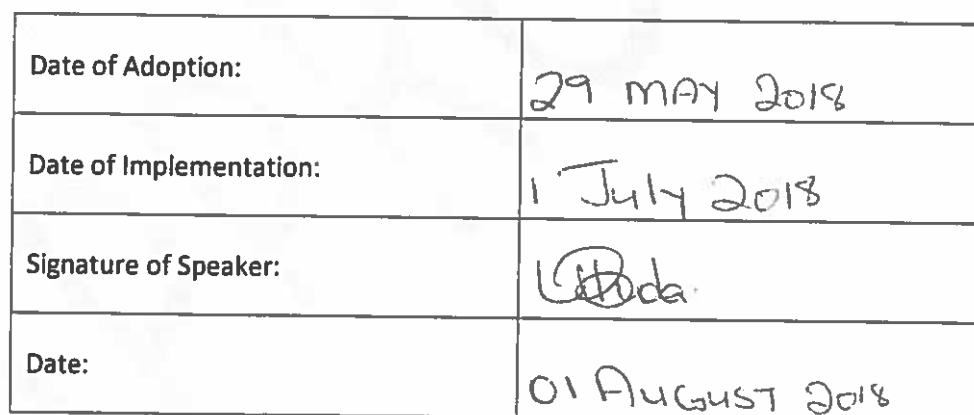 Date of Adoption:
29 MAY 2018
Date of Implementation:
1 July 2018
Signature of Speaker:
Date:
01 AUGUST 2018